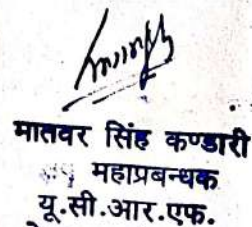 मातवर सिंह कण्डारी
महाप्रबन्धक
यू.सी.आर.एफ.